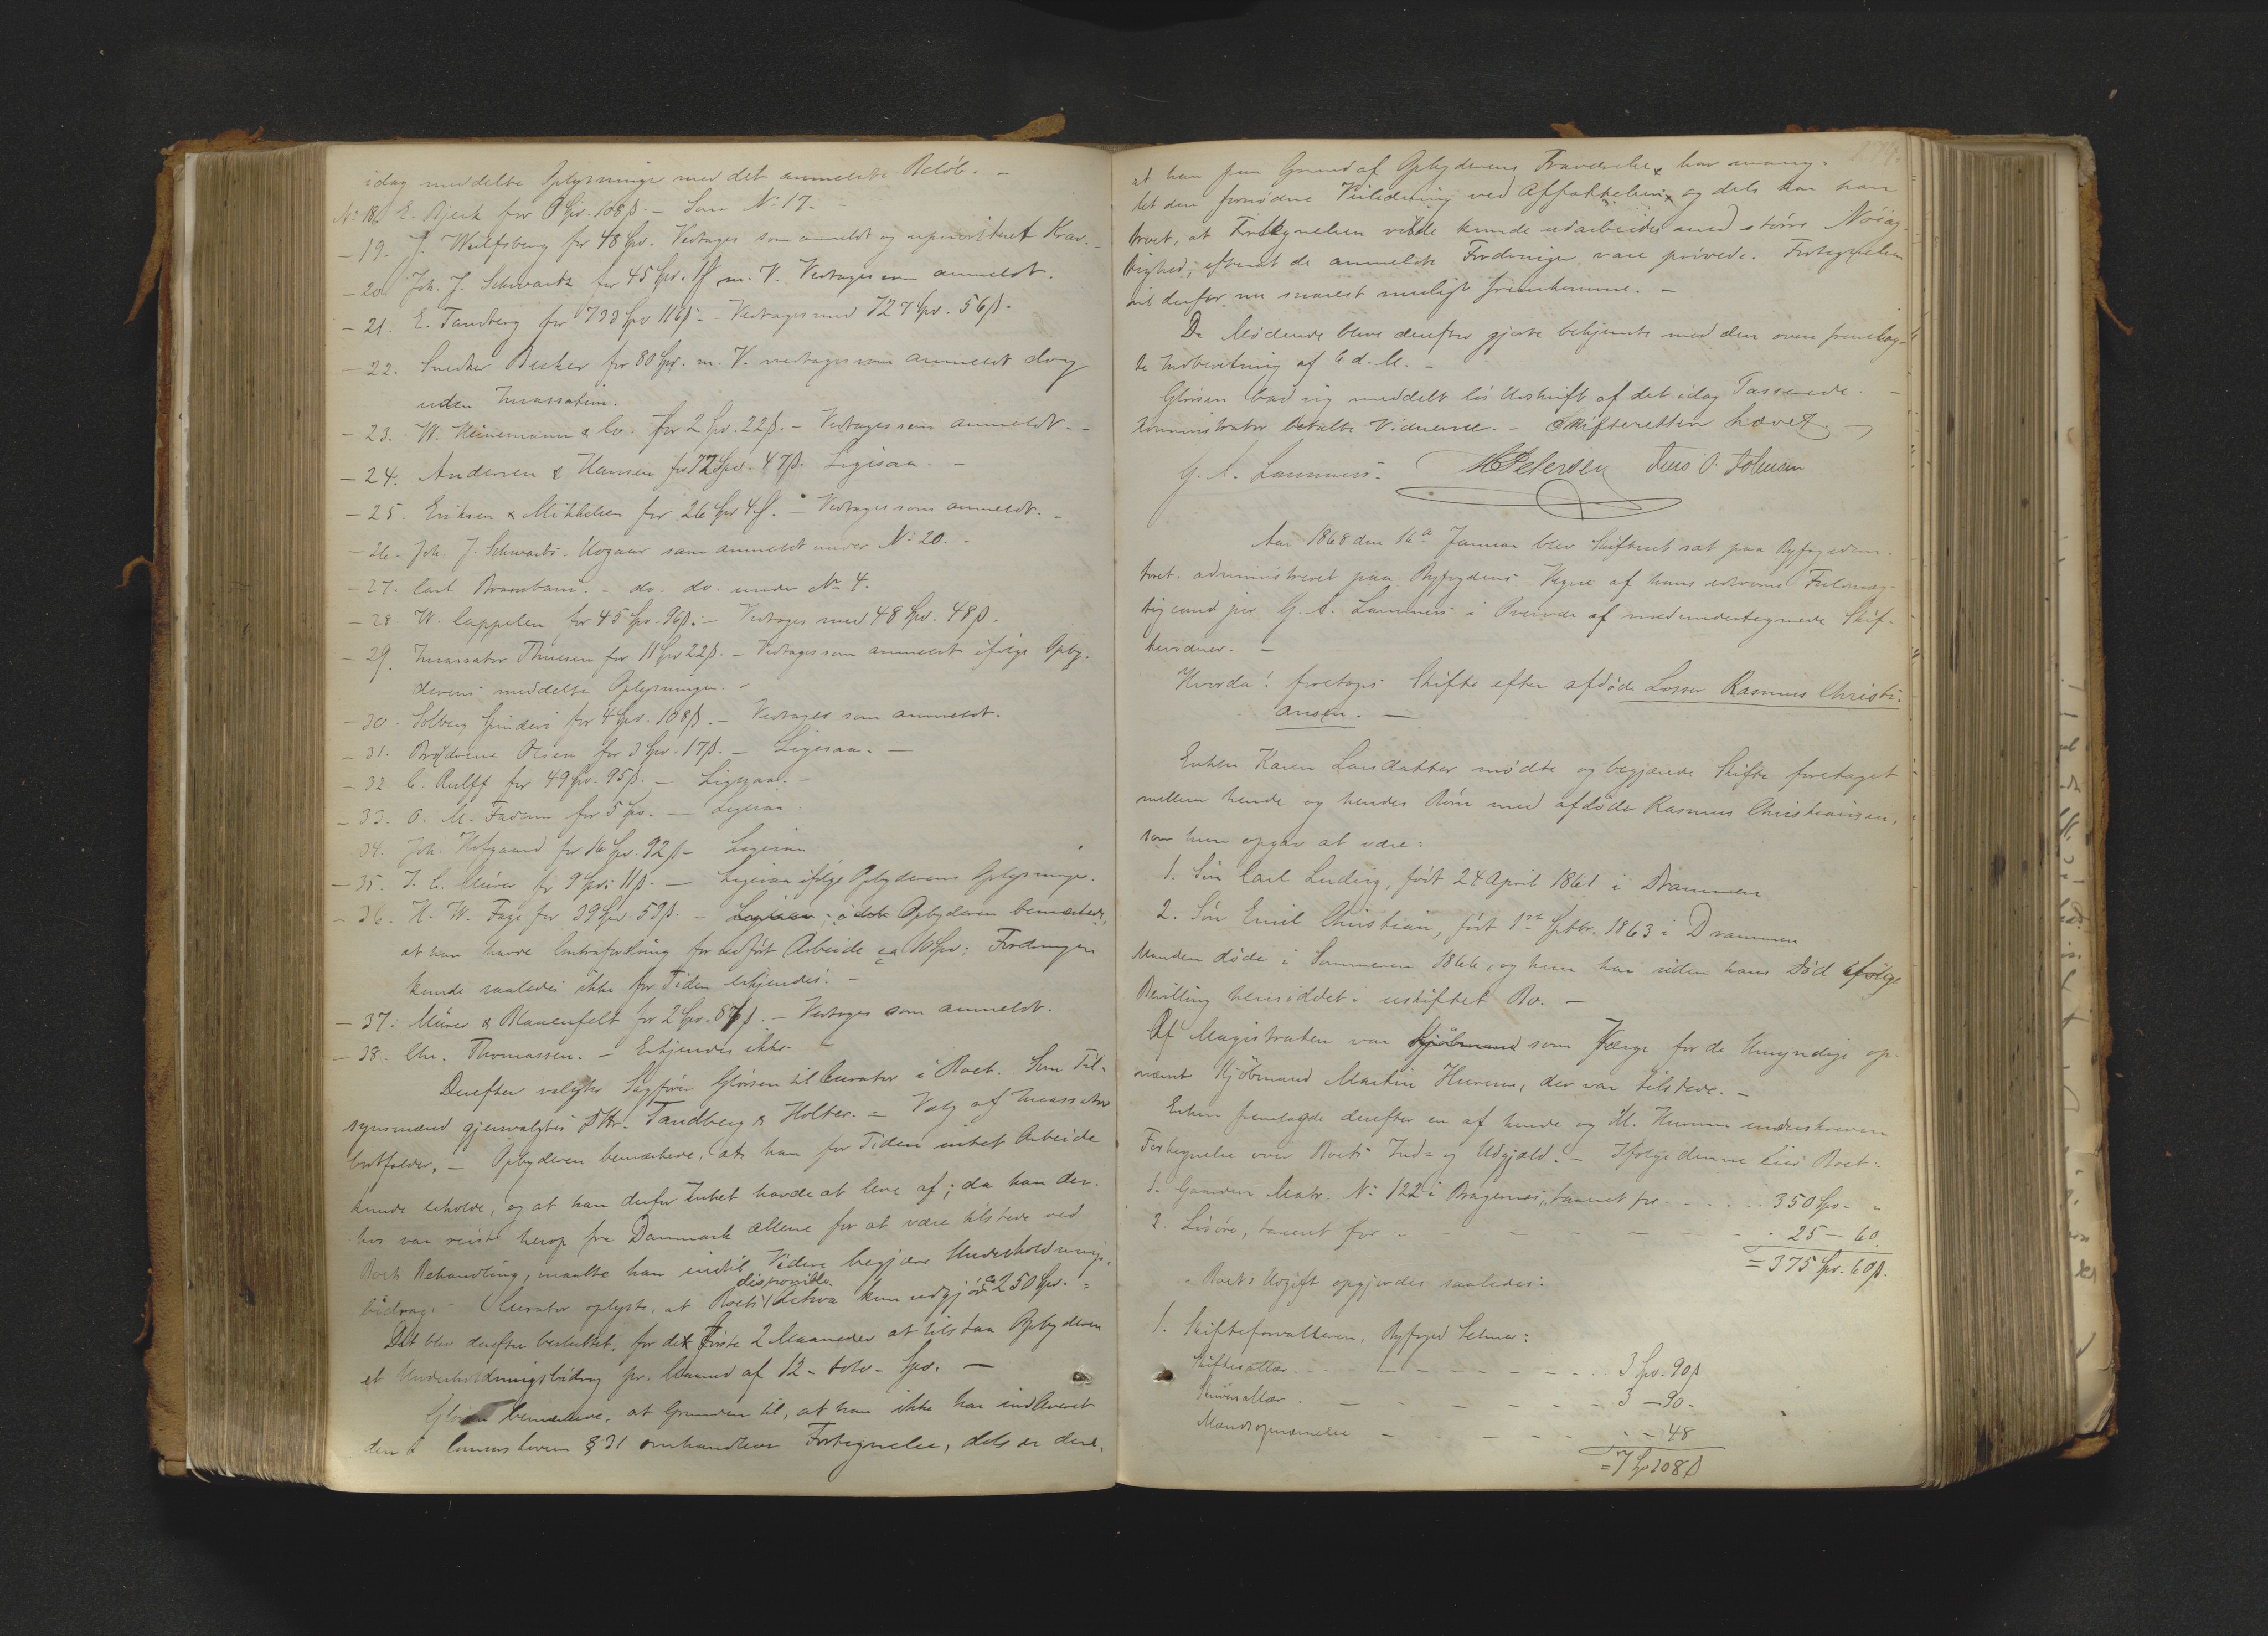 idag meddelte Oplysninger med det anmeldte Beløb. -
No 18. E. Bjerk for 0 Spd. 108 ß. - Som No 17. -
- 19. J. Wulfsberg for 48 Spd. Vedtages som anmeldt og uprioriteret Krav. -
- 20. Joh. J. Schwartz for 45 Spd. 1 ß m. V. Vedtages som anmeldt.
- 21. E. Tandberg for 733 Spd 11 ß. - Vedtages med 727 Spd. 56 ß.
- 22. Snedker Becker for 80 Spd. m. V. vedtages som anmeldt dog
uden Incassation.
- 23. W. Heinemann & Co. for 2 Spd. 22 ß. - Vedtages som anmeldt. -
- 24. Andersen & Hansen for 72 Spd. 47 ß. Ligesaa. -
- 25. Eriksen & Mikkelsen for 26 Spd 4 ß. - Vedtages som anmeldt. -
- 26. Joh. J. Schwartz. Udgaar som anmeldt under No 20. -
- 27. Carl - do. do. under No 4.
- 28. W. Cappelen for 45 Spd. 96 ß. - Vedtages med 48 Spd. 48 ß.
- 29. Incassator Thuesen for 11 Spd 22 ß. - Vedtages som anmeldt ifølge Opby-
derens meddelte Oplysninger. -
- 30. Solberg Spinderi for 4 Spd. 108 ß. - Vedtages som anmeldt.
- 31. Brødrene Olsen for 3 Spd. 17 ß. - Ligesaa. -
- 32. C. Rulff for 49 Spd. 95 ß. - Ligesaa. -
- 33. O. M. for 5 Spd. - Ligesaa
- 34. Joh. Hofgaard for 16 Spd. 92 ß - Ligesaa
- 35. J. C. Mürer for 9 Spd. 11 ß. - Ligesaa ifølge Opbyderens Oplysninger.
- 36. H. W. Fage for 39 Spd. 53 ß. - Ligesaa, idet Opbyderen bemærkede,
at han havde Contrafordring for udført Arbeide ca 10 Spd.; Fordringen
kunde saaledes ikke for Tiden erkjendes. -
- 37. Mürer & Blauenfelt for 2 Spd. 87 ß. - Vedtages som anmeldt.
- 38. Chr. Thomassen. - Erkjendes ikke. -
Derefter valgtes Sagfører Glørsen til Curator i Boet. Som Til-
synsmænd gjenvalgtes DHr. Tandberg & Holter. - Valg af Incassator
bortfalder. - Opbyderen bemærkede, at han for Tiden intet Arbeide
kunde erholde, og at han derfor Intet havde at leve af; da han der-
hos var reist herop fra Danmark allene for at være tilstede ved
Boets Behandling, maatte han indtil Videre begjære Underholdnings-
bidrag. - Curator oplyste, at Boets disponible Activa kun udgjør ca 250 Spd. -
Det blev derefter besluttet, for de første 2 Maaneder at tilstaa Opbyderen
et Underholdningsbidrag pr. Maaned af 12 - tolv - Spd. -
Glørsen bemærkede, at Grunden til, at han ikke har indleveret
den i Concursloven § 31 omhandlede Fortegnelse, dels er den,
at han paa Grund af Opbyderens Fraværelse, har mang-
let den fornødne Veiledning ved Affattelsen, og dels har han
troet, at Fortegnelsen vilde kunde udarbeides med større Nøiag-
tighed, efterat de anmeldte Fordringer vare prøvede. Fortegnelsen
vil derfor nu snarest muligt fremkomme. -
De Mødende bleve derefter gjorte bekjendte med den oven fremlag-
te Indberetning af 6 d. M. -
Glørsen bad sig meddelt Udskrift af det idag Passerede. -
Administrator betalte Vidnerne. - Skifteretten hævet. -
G. A. Lammers. HPetersen Jens O. Johnsen
Aar 1868 den 16de Januar blev Skifteret sat paa Byfogedcon-
toret, administreret paa Byfogdens Vegne af hans edsvorne Fuldmæg-
tig cand jur. G. A. Lammers i Overvær af medundertegnede Skif-
tevidner. -
Hvorda: foretoges Skifte efter afdøde Losser Rasmus Christi-
ansen. -
Enken Karen Larsdatter mødte og begjærede Skifte foretaget
mellem hende og hendes Børn med afdøde Rasmus Christiansen,
som hun opgav at være:
1. Søn Carl Ludvig, født 24 April 1861 i Drammen
2. Søn Emil Christian, født 1ste Septbr. 1863 i Drammen
Manden døde i Sommeren 1866, og hun har siden hans Død ifølge
Bevilling hensiddet i uskiftet Bo. -
Af Magistraten var Kjøbmand som Værge for de Umyndige op-
nævnt Kjøbmand Martin Hurum, der var tilstede. -
Enken fremlagde derefter en af hende og M. Hurum underskreven
Fortegnelse over Boets Ind- og Udgjæld. - Ifølge denne eies Boet:
1. Gaarden Matr. No 122 i Bragernes, taxeret for - - - - - 350 Spd. - "
2. Løsøre, taxeret for - - - - - - - - 25 - 60.
= 375 Spd. 60 ß.
Boets Udgift opgjordes saaledes:
1. Skifteforvalteren, Byfoged Selmer:
Skiftesallær - - - - - - - - 3 Spd. 90 ß
Skriversallær - - - - - - - 3 - 90 -
Mandsopnævnelse - - - - - " - 48
= 7 Spd 108 ß